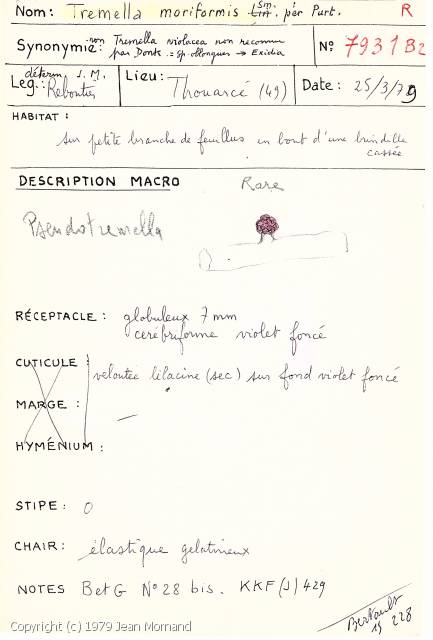 Nom: Tremella moriformis Sm. per Purt. R
Synonymie: non Tremella violacea non reconnu
par Donk. = Sp. oblongues → Exidia
N° 7931 B2
déterm J. M.
Leg.: Rebouties
Lieu: Thouarcé (49)
Date: 25/3/79
HABITAT:
sur petite branche de feuillus en bout d'une brindille
cassée
DESCRIPTION MACRO Rare
Pseudotremella
RÉCEPTACLE: globuleux 7 mm
cerébriforme violet foncé
CUTICULE: veloutee lilacine (sec) sur fond violet foncé
MARGE: —
HYMÉNIUM:
STIPE: 0
CHAIR: élastique gelatineux
NOTES Bet G N° 28 bis. KKF (J) 429
Bertault
19 228
Copyright (c) 1979 Jean Mornand